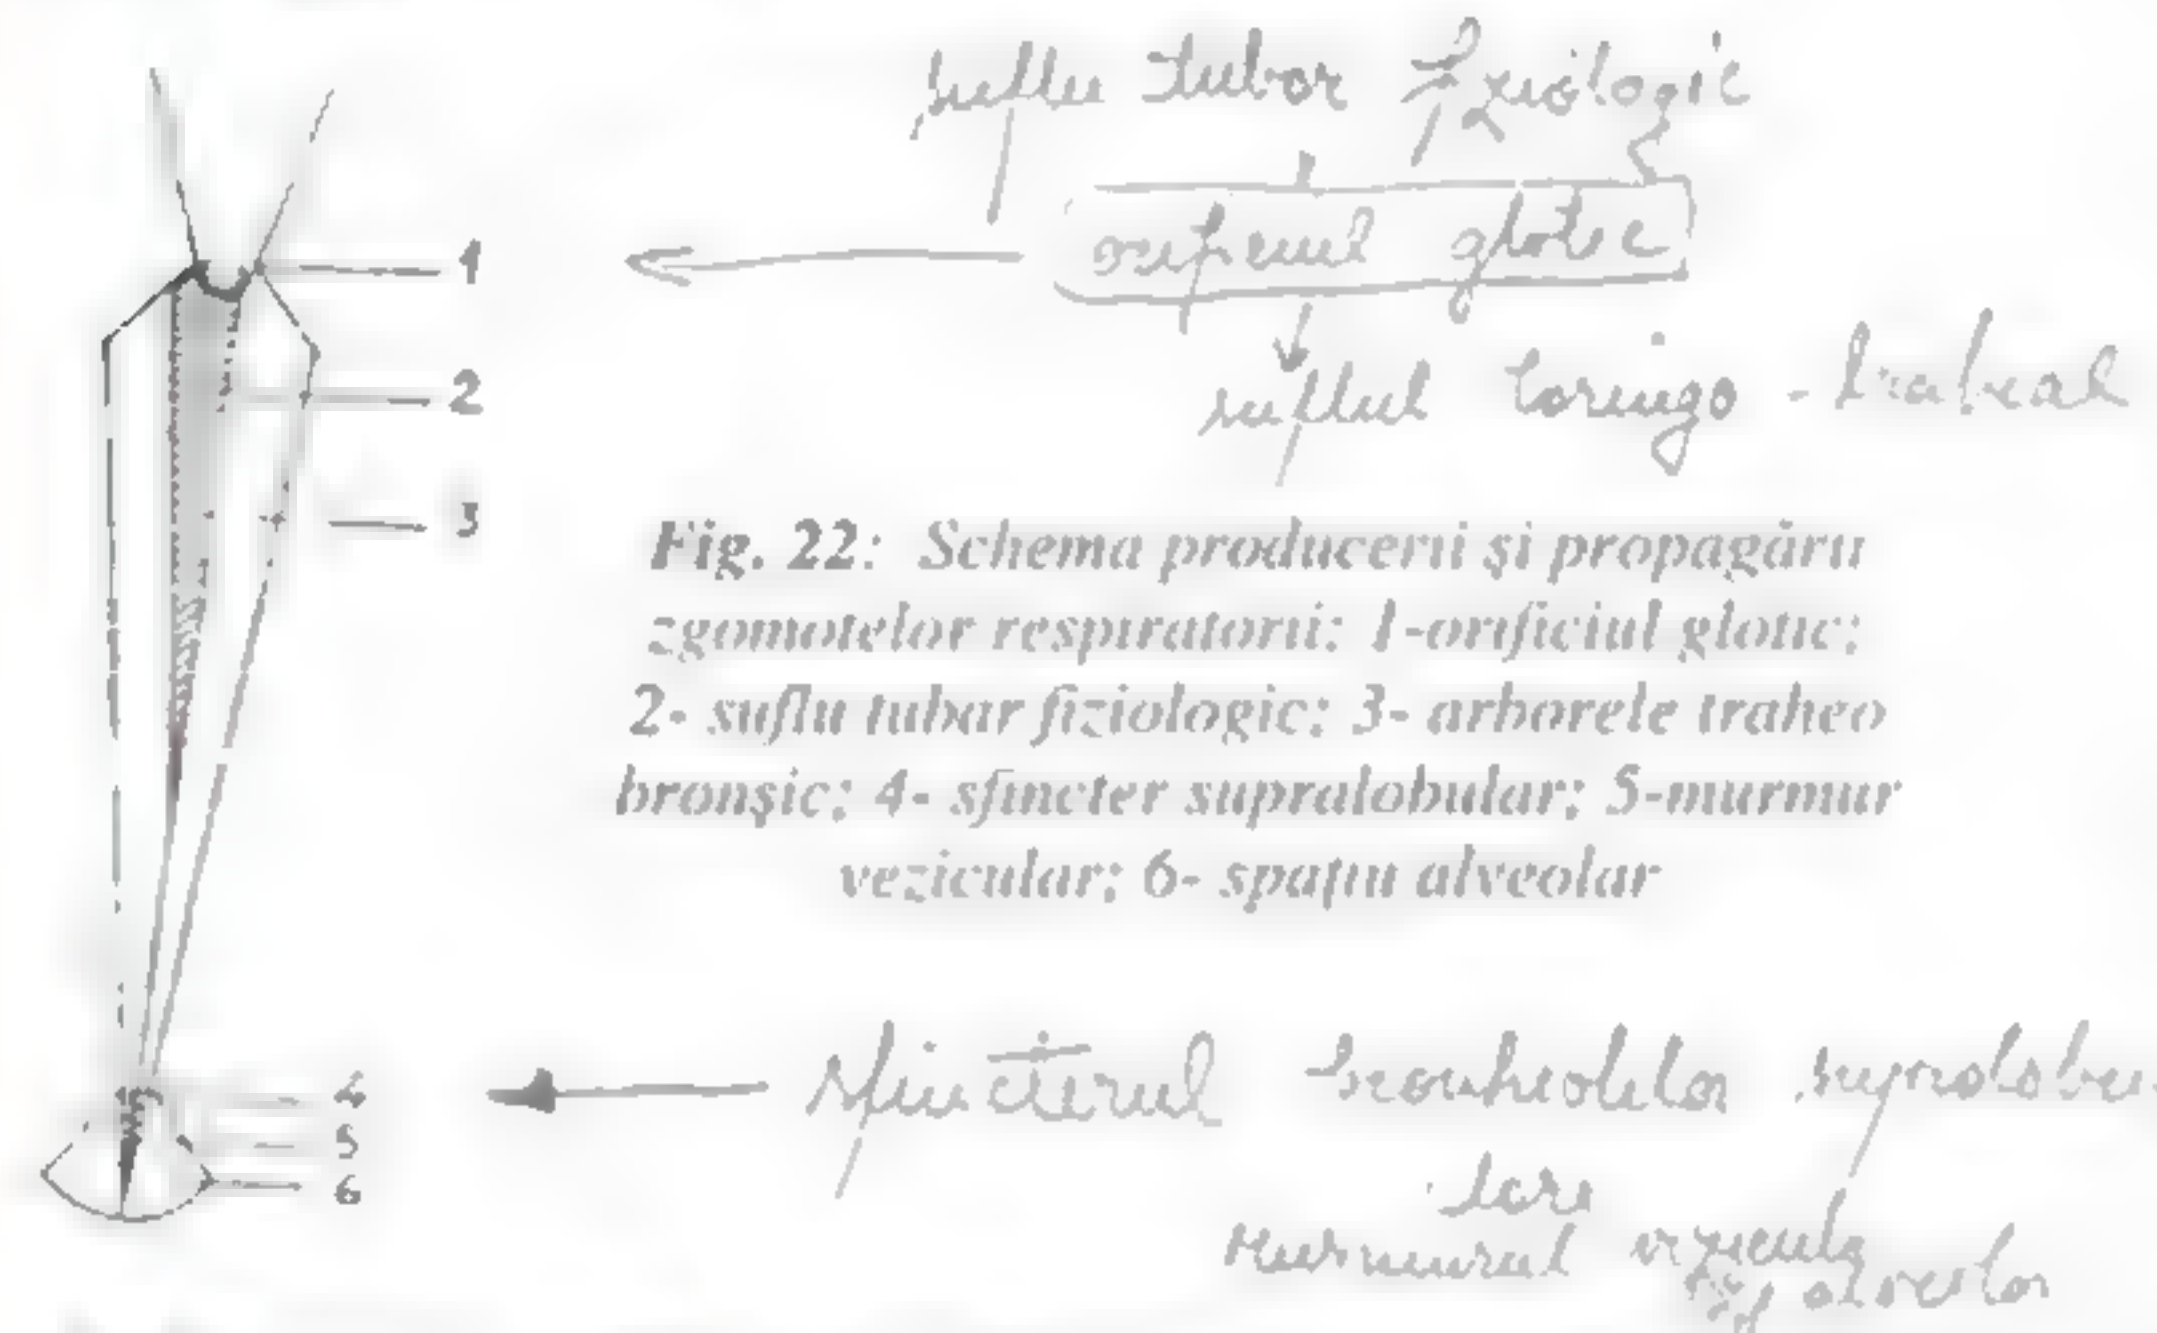 suflu tubar fiziologic
orificiul glotic
suflul laringo-traheal
1
2
3
Fig. 22: Schema producerii și propagării
zgomotelor respiratorii: 1-orificiul glotic;
2- suflu tubar fiziologic; 3- arborele traheo
bronșic; 4- sfincter supralobular; 5-murmur
vezicular; 6- spațiu alveolar
4
5
6
sfincterul bronhiolelor supralobu-
lare
murmurul vezicular
alveolar